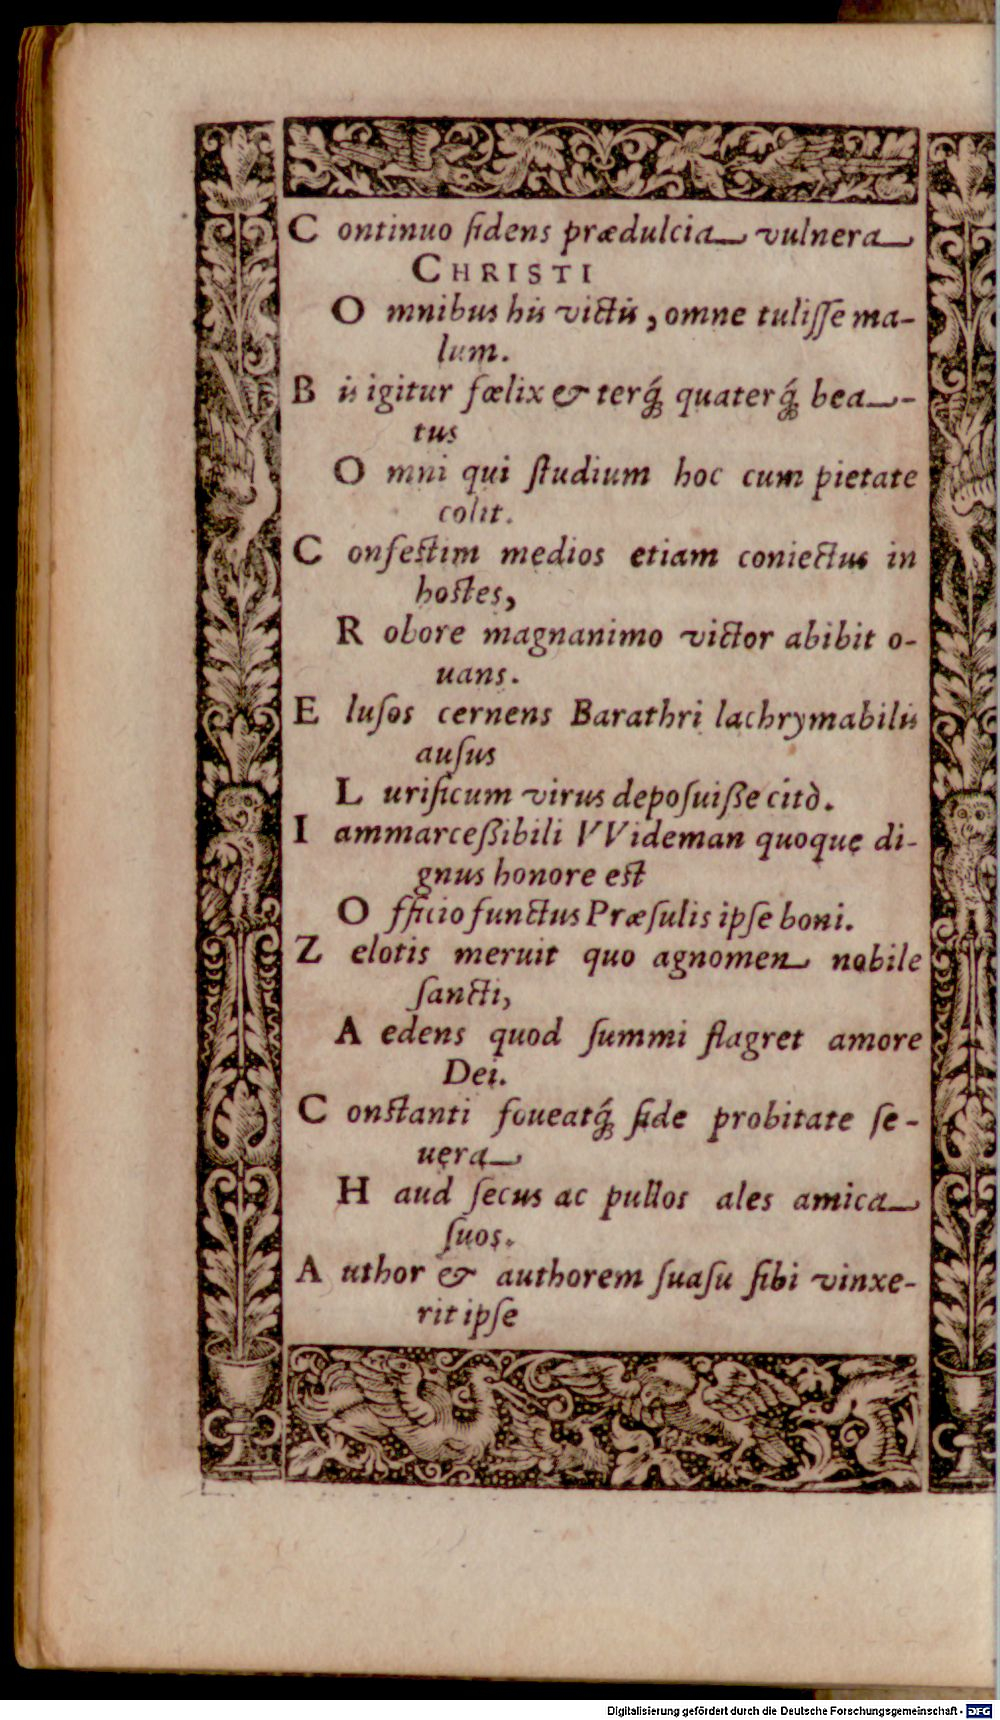 C ontinuo fidens prædulcia vulnera
CHRISTI
O mnibus his victis, omne tulisse ma-
lum.
B is igitur fœlix & terq́; quaterq́; bea-
tus
O mni qui studium hoc cum pietate
colit.
C onfestim medios etiam coniectus in
hostes,
R obore magnanimo victor abibit o-
uans.
E lusos cernens Barathri lachrymabilis
ausus
L urificum virus deposuiße citò.
I ammarceßibili VVideman quoque di-
gnus honore est
O fficio functus Præsulis ipse boni.
Z elotis meruit quo agnomen nobile
sancti,
A edens quod summi flagret amore
Dei.
C onstanti foueatq́; fide probitate se-
uera
H aud secus ac pullos ales amica
suos.
A uthor & authorem suasu sibi vinxe-
rit ipse
Digitalisierung gefördert durch die Deutsche Forschungsgemeinschaft - DFG